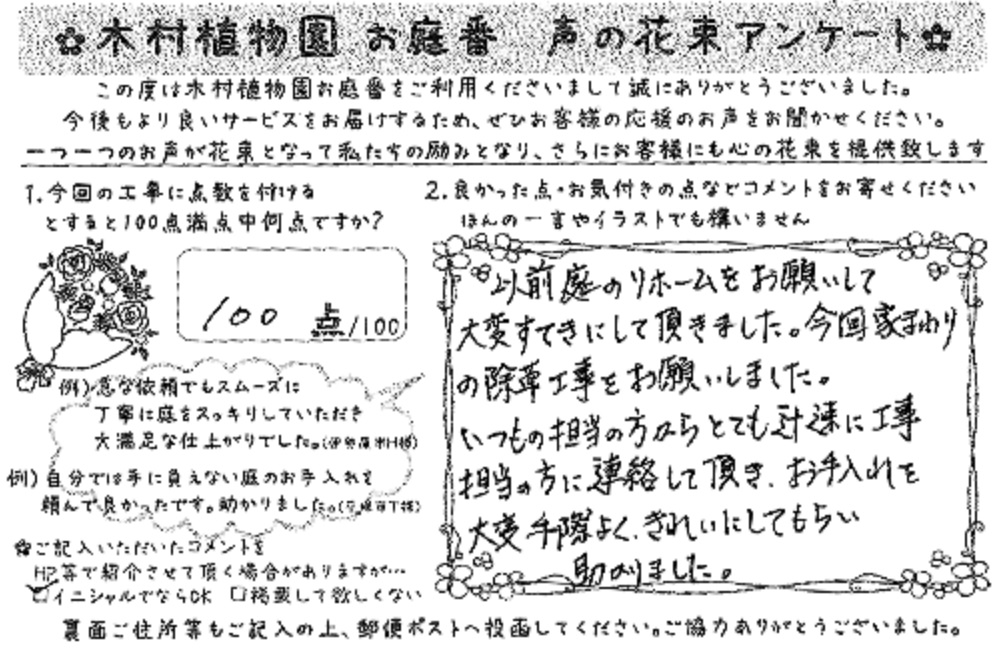 木村植物園 お庭番 声の花束アンケート
この度は木村植物園お庭番をご利用くださいまして誠にありがとうございました。
今後もより良いサービスをお届けするため、ぜひお客様の応援のお声をお聞かせください。
一つ一つのお声が花束となって私たちの励みとなり、さらにお客様にも心の花束を提供致します
1.今回の工事に点数を付ける
とすると100点満点中何点ですか?
100 点/100
例)急な依頼でもスムーズに
丁寧に庭をスッキリしていただき
大満足な仕上がりでした。(伊勢原市H様)
例)自分では手に負えない庭のお手入れを
頼んで良かったです。助かりました。
✿ご記入いただいたコメントを
HP等で紹介させて頂く場合がありますが…
☑イニシャルでならOK □掲載して欲しくない
2.良かった点・お気付きの点などコメントをお寄せください
ほんの一言やイラストでも構いません
以前庭のリホームをお願いして
大変すてきにして頂きました。今回家まわり
の除草工事をお願いしました。
いつもの担当の方からとても迅速に工事
担当の方に連絡して頂き、お手入れを
大変手際よく、きれいにしてもらい
助かりました。
裏面ご住所等もご記入の上、郵便ポストへ投函してください。ご協力ありがとうございました。